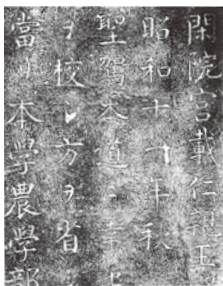 閑院宮載仁親王
昭和十一年秋
聖駕本道ニ幸
ヲ校シ方ヲ省
當リ本學農學部